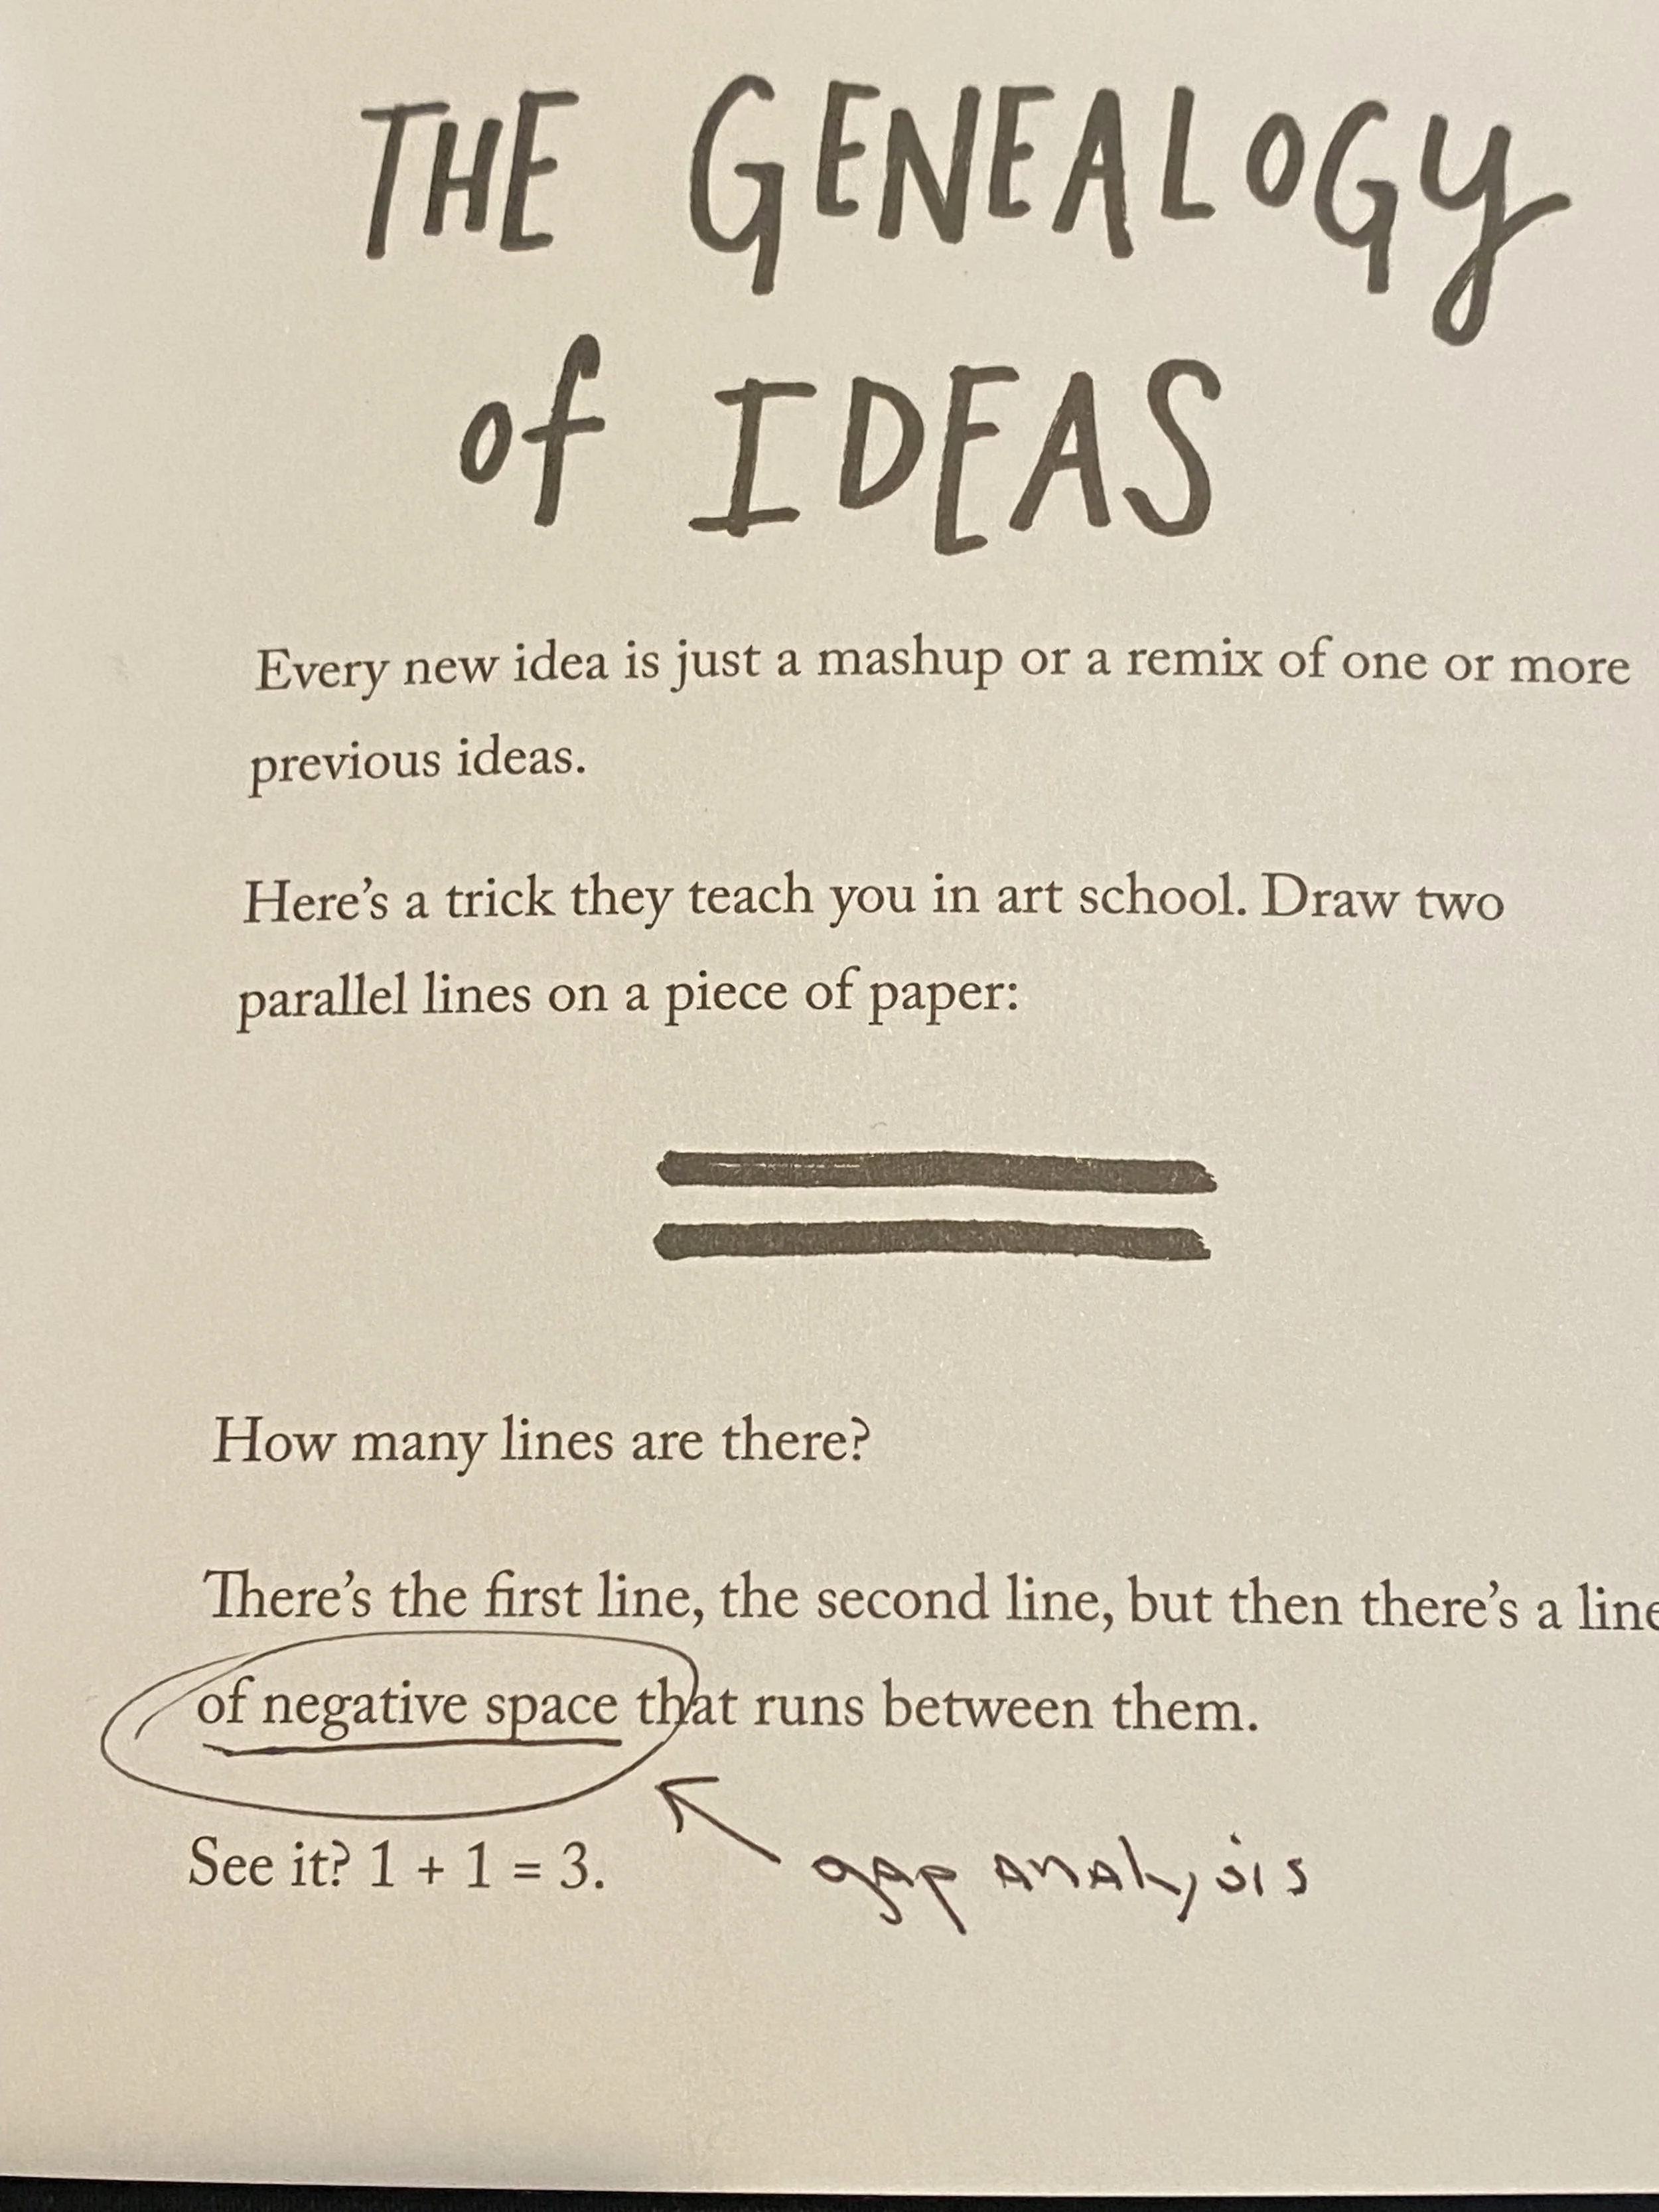 THE GENEALOGY
of IDEAS
Every new idea is just a mashup or a remix of one or more
previous ideas.
Here's a trick they teach you in art school. Draw two
parallel lines on a piece of paper:
How many lines are there?
There's the first line, the second line, but then there's a line
of negative space that runs between them.
See it? 1 + 1 = 3.
gap analysis